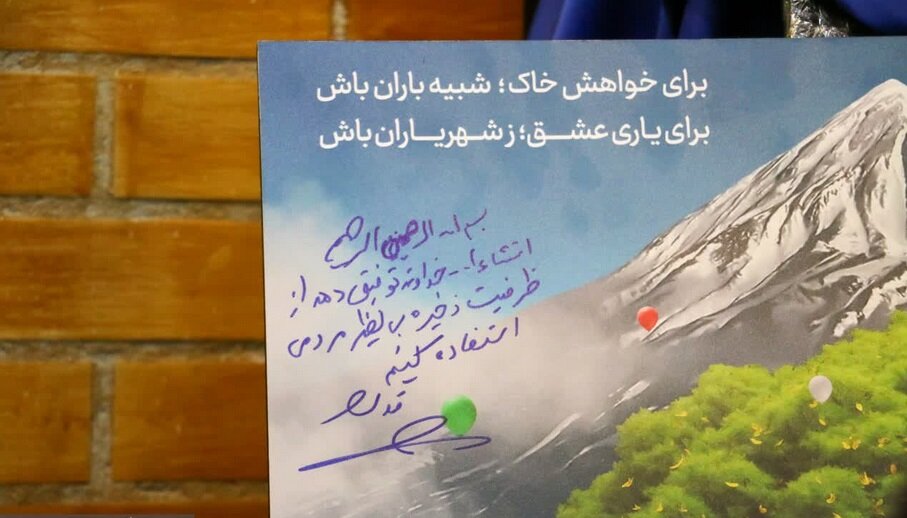 برای خواهش خاک؛ شبیه باران باش
برای یاری عشق؛ ز شهریاران باش
بسم الله الرحمن الرحیم
انشاءا... خداوند توفیق دهد از
ظرفیت ذخیره بی نظیر مردمی
استفاده کنیم